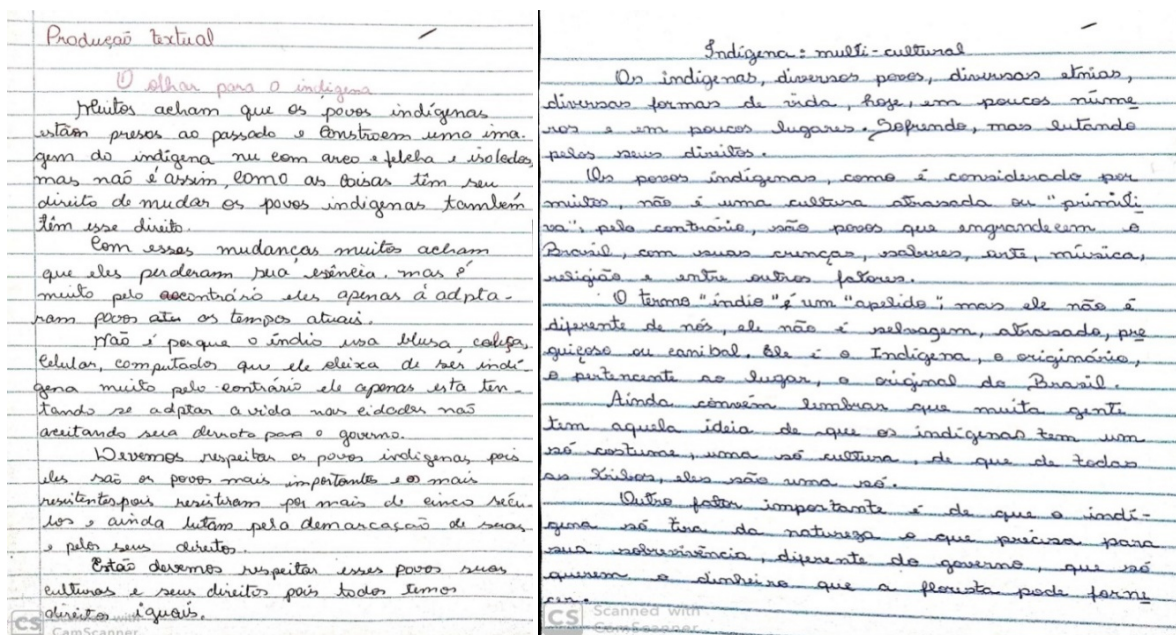 Produção textual
O olhar para o indigena
Muitos acham que os povos indígenas
estãm presos ao passado e constroem uma ima-
gem do indígena nu com arco e flecha e isolados,
mas naõ é assim, como as coisas têm seu
direito de mudar os povos indigenas também
têm esse direito.
Com essas mudanças muitos acham
que eles perderam sua essência. mas é
muito pelo contrário eles apenas á adpta-
ram para ate os tempos atuais.
Não é porque o índio usa blusa, calça,
Celular, computador que ele deixa de ser indí-
gena muito pelo contrário ele apenas esta ten-
tando se adptar a vida nas cidades naõ
aceitando sua derrota para o governo.
Devemos respeitar os povos indigenas pois
eles saõ os povos mais importantes e os mais
resitentes pois resistiram por mais de cinco sécu-
los e ainda lutam pela demarcação de suas
e pelos seus direitos.
Estaõ devemos respeitar esses povos suas
culturas e seus direitos pois todos temos
direitos iguais.
CS
CamScanner
Indígena: multi-cultural
Os indígenas, diversos povos, diversas etnias,
diversas formas de vida, hoje, em poucos núme
ros e em poucos lugares. Sofrendo, mas lutando
pelos seus direitos.
Os povos indígenas, como é considerado por
muitos, não é uma cultura atrasada ou "primiti
va"; pelo contrário, são povos que engrandecem o
Brasil, com suas crenças, saberes, arte, música,
religião e entre outros fatores.
O termo "índio" é um "apelido"; mas ele não é
diferente de nós, ele não é selvagem, atrasado, pre
guiçoso ou canibal. Ele é o Indígena, o originário,
o pertencente ao lugar, o original do Brasil.
Ainda convém lembrar que muita gente
tem aquela ideia de que os indígenas tem um
só costume, uma só cultura, de que de todas
as tribos, eles são uma só.
Outro fator importante é de que o indí-
gena só tira da natureza o que precisa para
sua sobrevivência, diferente do governo, que só
querem o dinheiro que a floresta pode forne
cer.
CS Scanned with
CamScanner